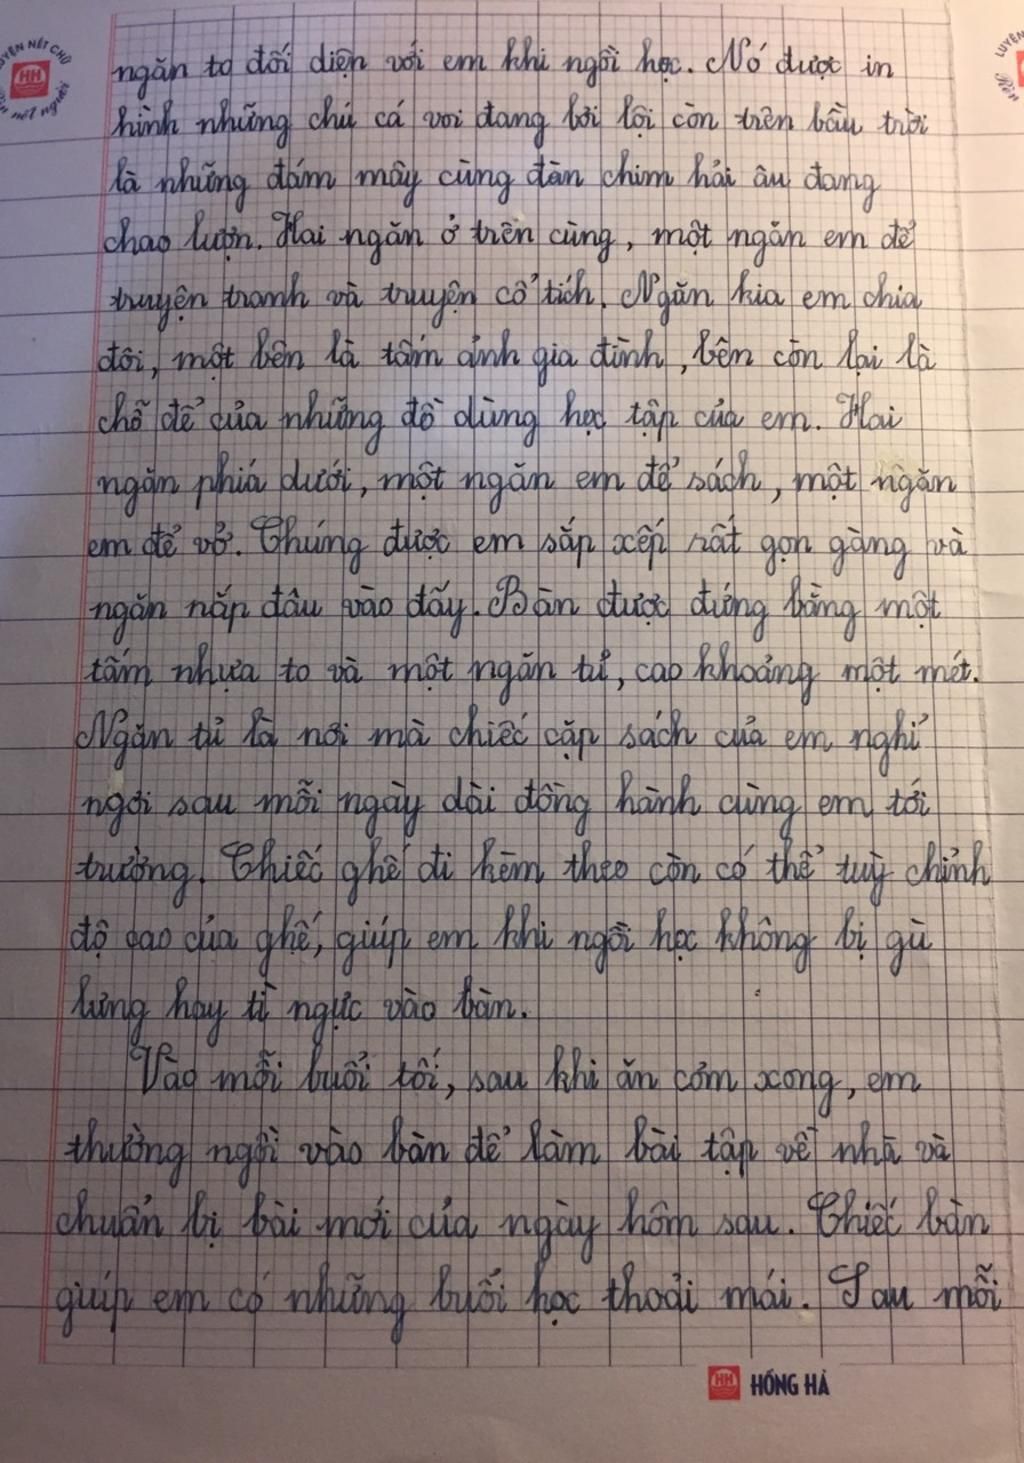 ngăn to đối diện với em khi ngồi học. Nó được in
hình những chú cá voi đang bơi lội còn trên bầu trời
là những đám mây cùng đàn chim hải âu đang
chao lượn. Hai ngăn ở trên cùng, một ngăn em để
truyện tranh và truyện cổ tích. Ngăn kia em chia
đôi, một bên là tấm ảnh gia đình, bên còn lại là
chỗ để của những đồ dùng học tập của em. Hai
ngăn phiá dưới, một ngăn em để sách, một ngăn
em để vở. Chúng được em sắp xếp rất gọn gàng và
ngăn nắp đâu vào đấy. Bàn được đứng bằng một
tấm nhựa to và một ngăn tủ, cao khoảng một mét.
Ngăn tủ là nơi mà chiếc cặp sách của em nghỉ
ngơi sau mỗi ngày dài đồng hành cùng em tới
trường. Chiếc ghế đi kèm theo còn có thể tuỳ chỉnh
độ cao của ghế, giúp em khi ngồi học không bị gù
lưng hay tì ngực vào bàn.
Vào mỗi buổi tối, sau khi ăn cơm xong, em
thường ngồi vào bàn để làm bài tập về nhà và
chuẩn bị bài mới của ngày hôm sau. Chiếc bàn
giúp em có những buổi học thoải mái. Sau mỗi
HH HỒNG HÀ